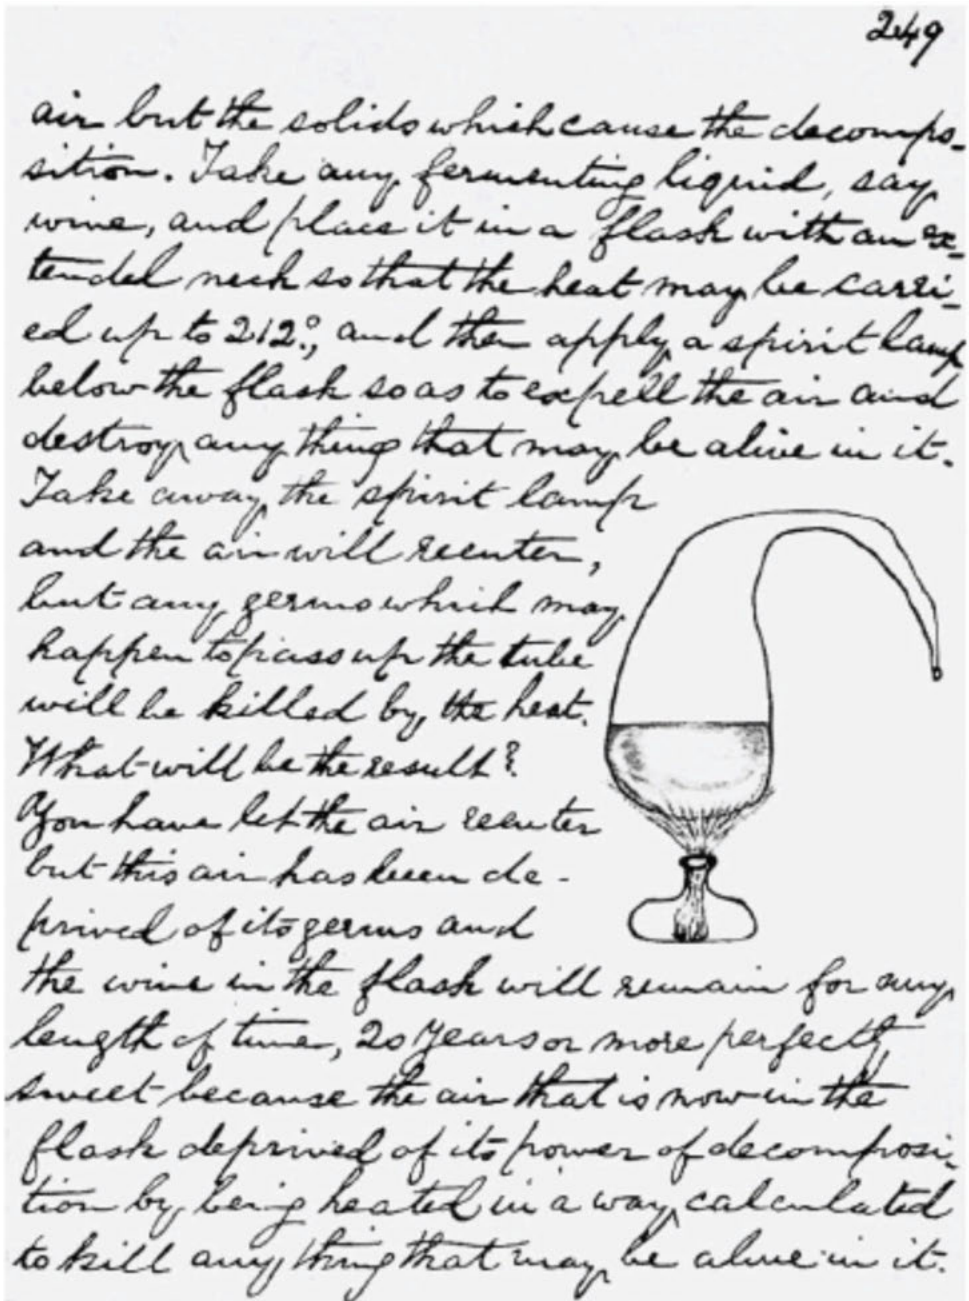 249
air but the solids which cause the decompo-
sition. Take any fermenting liquid, say
wine, and place it in a flask with an ex-
tended neck so that the heat may be carri-
ed up to 212°, and then apply a spirit lamp
below the flask so as to expell the air and
destroy any thing that may be alive in it.
Take away the spirit lamp
and the air will reenter,
but any germs which may
happen to pass up the tube
will be killed by the heat.
What will be the result?
You have let the air reenter
but this air has been de-
prived of its germs and
the wine in the flask will remain for any
length of time, 20 years or more perfectly
sweet because the air that is now in the
flask deprived of its power of decomposi-
tion by being heated in a way calculated
to kill any thing that may be alive in it.